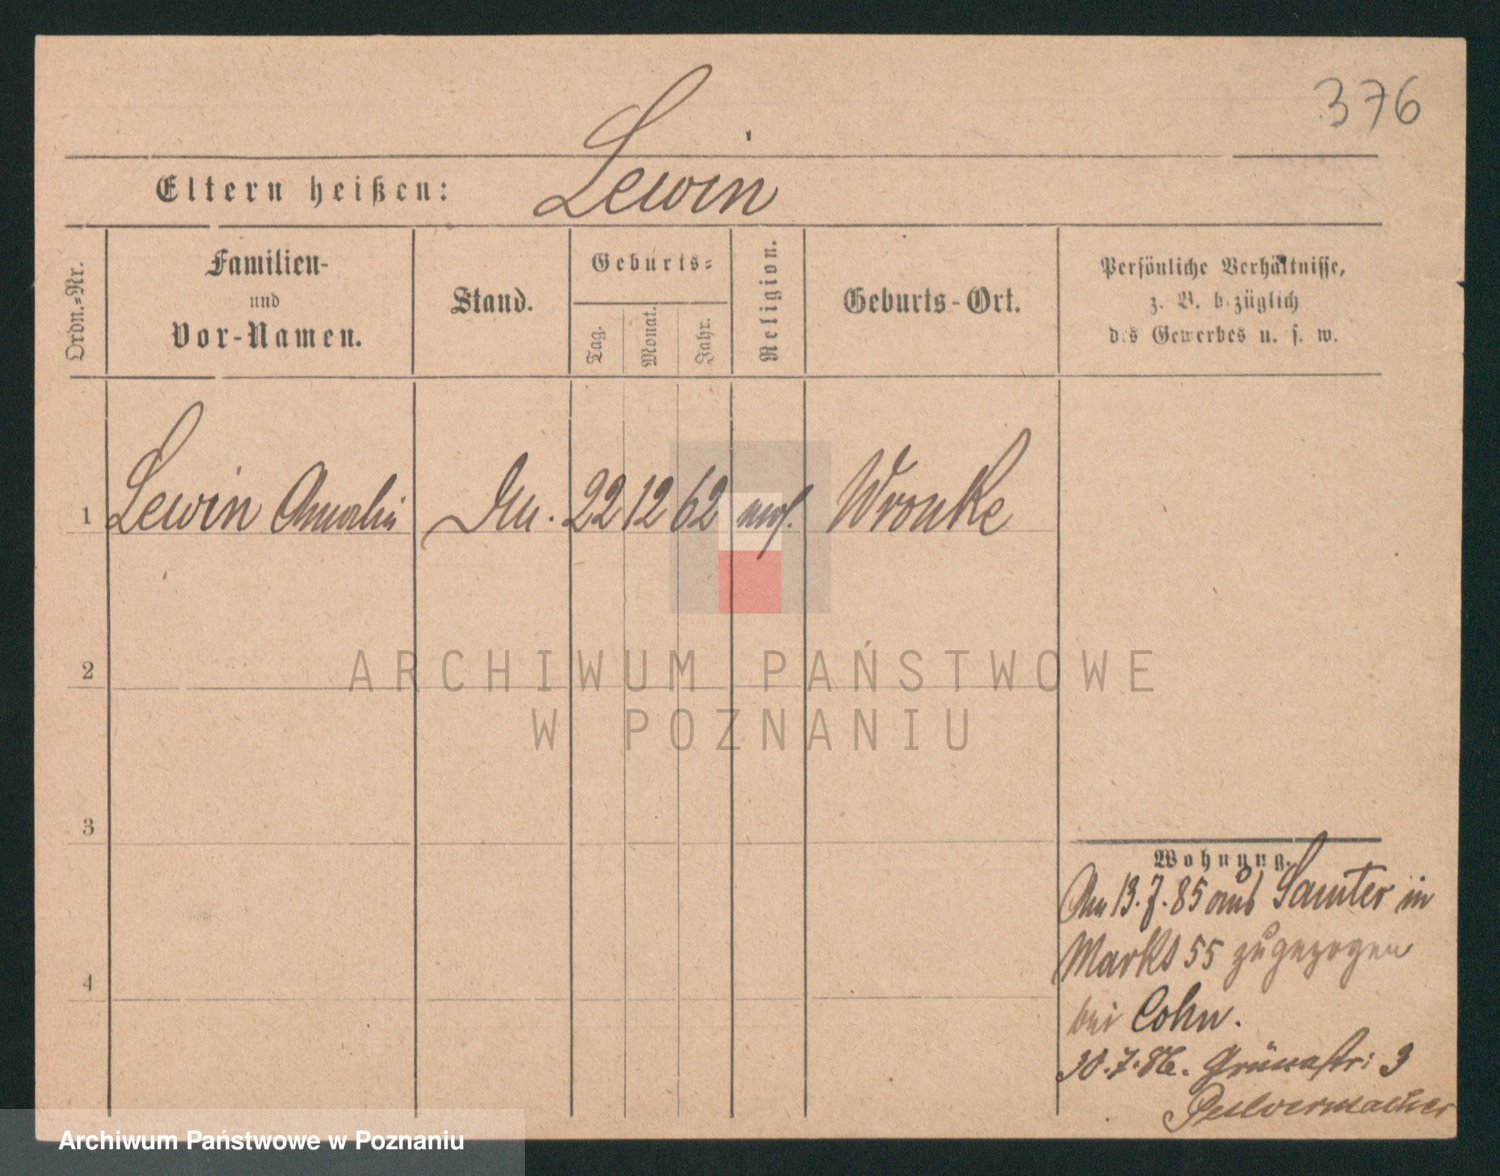 376
Eltern heißen: Lewin
Ordn.-Nr.
Familien-
und
Vor-Namen.
Stand.
Geburts-
Tag.
Monat.
Jahr.
Religion.
Geburts-Ort.
Persönliche Verhältnisse,
z. B. bezüglich
des Gewerbes u. s. w.
1 Lewin Amalie 22 12 62 mos. Wronke
2
3
4
Wohnung.
Am 13.7.85 aus Samter in
Markt 55 zugezogen
bei Cohn.
30.7.86. Grünestr: 3
Pulvermacher
ARCHIWUM PAŃSTWOWE
W POZNANIU
Archiwum Państwowe w Poznaniu